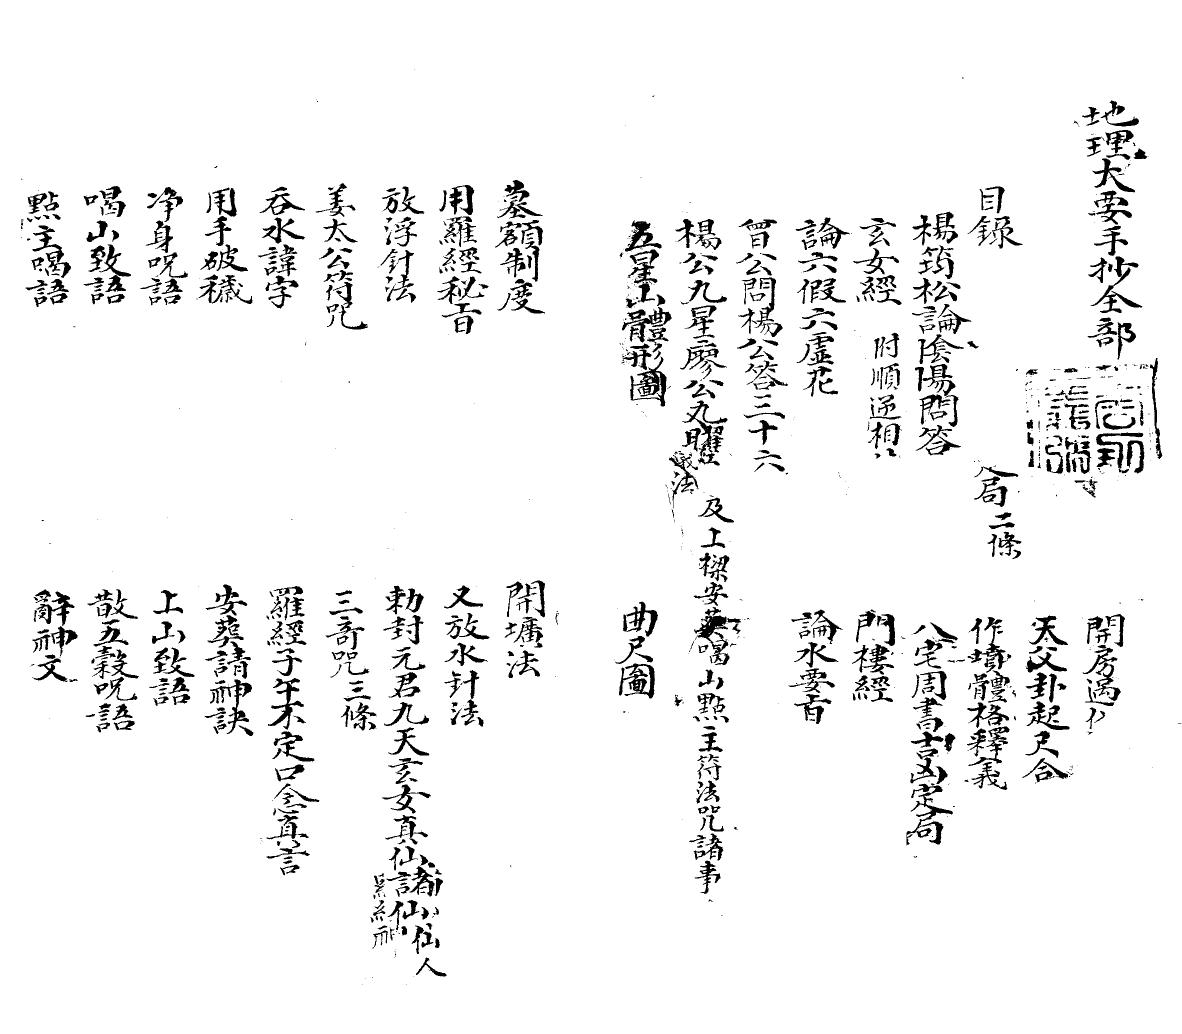 地理大要手抄全部
目錄
局二條
開房遇
楊筠松論陰陽問答
天父卦起尺合
玄女經 附順逆相
作墳體格釋義
論六假六虛花
八宅周書吉凶定局
曾公問楊公答三十六
門樓經
楊公九星廖公九曜
論水要旨
及上樑安葬喝山點主符法咒諸事
五星山體形圖
曲尺圖
墓額制度
開壙法
用羅經秘旨
又放水針法
放浮針法
勅封元君九天玄女真仙諸仙仙人
姜太公符咒
三奇咒三條
吞水諱字
羅經子午不定口念真言
用手破穢
安葬請神訣
净身咒語
上山致語
喝山致語
散五穀咒語
點主喝語
辭神文